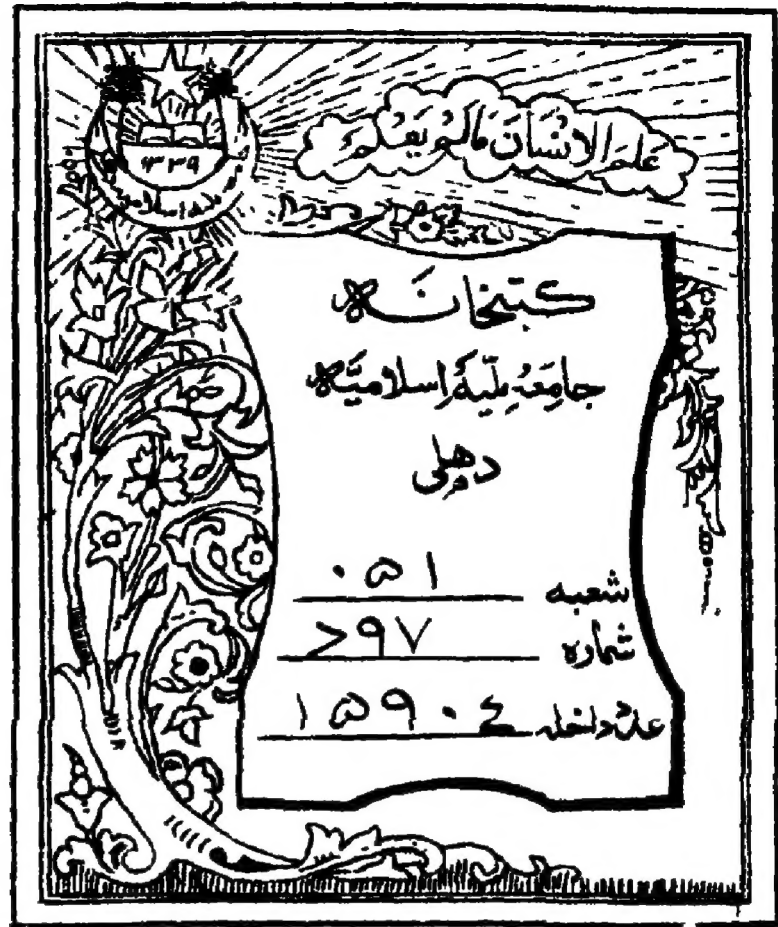 عَلَّمَ الْاِنْسَانَ مَا لَمْ يَعْلَمْ
۱۳۳۹
جامعہ ملیہ اسلامیہ
کتبخانہ
جامعہ ملیہ اسلامیہ
دھلی
شعبہ ۰۵۱
شمارہ >۹۷
عدد داخلہ ۱۵۹۰٤